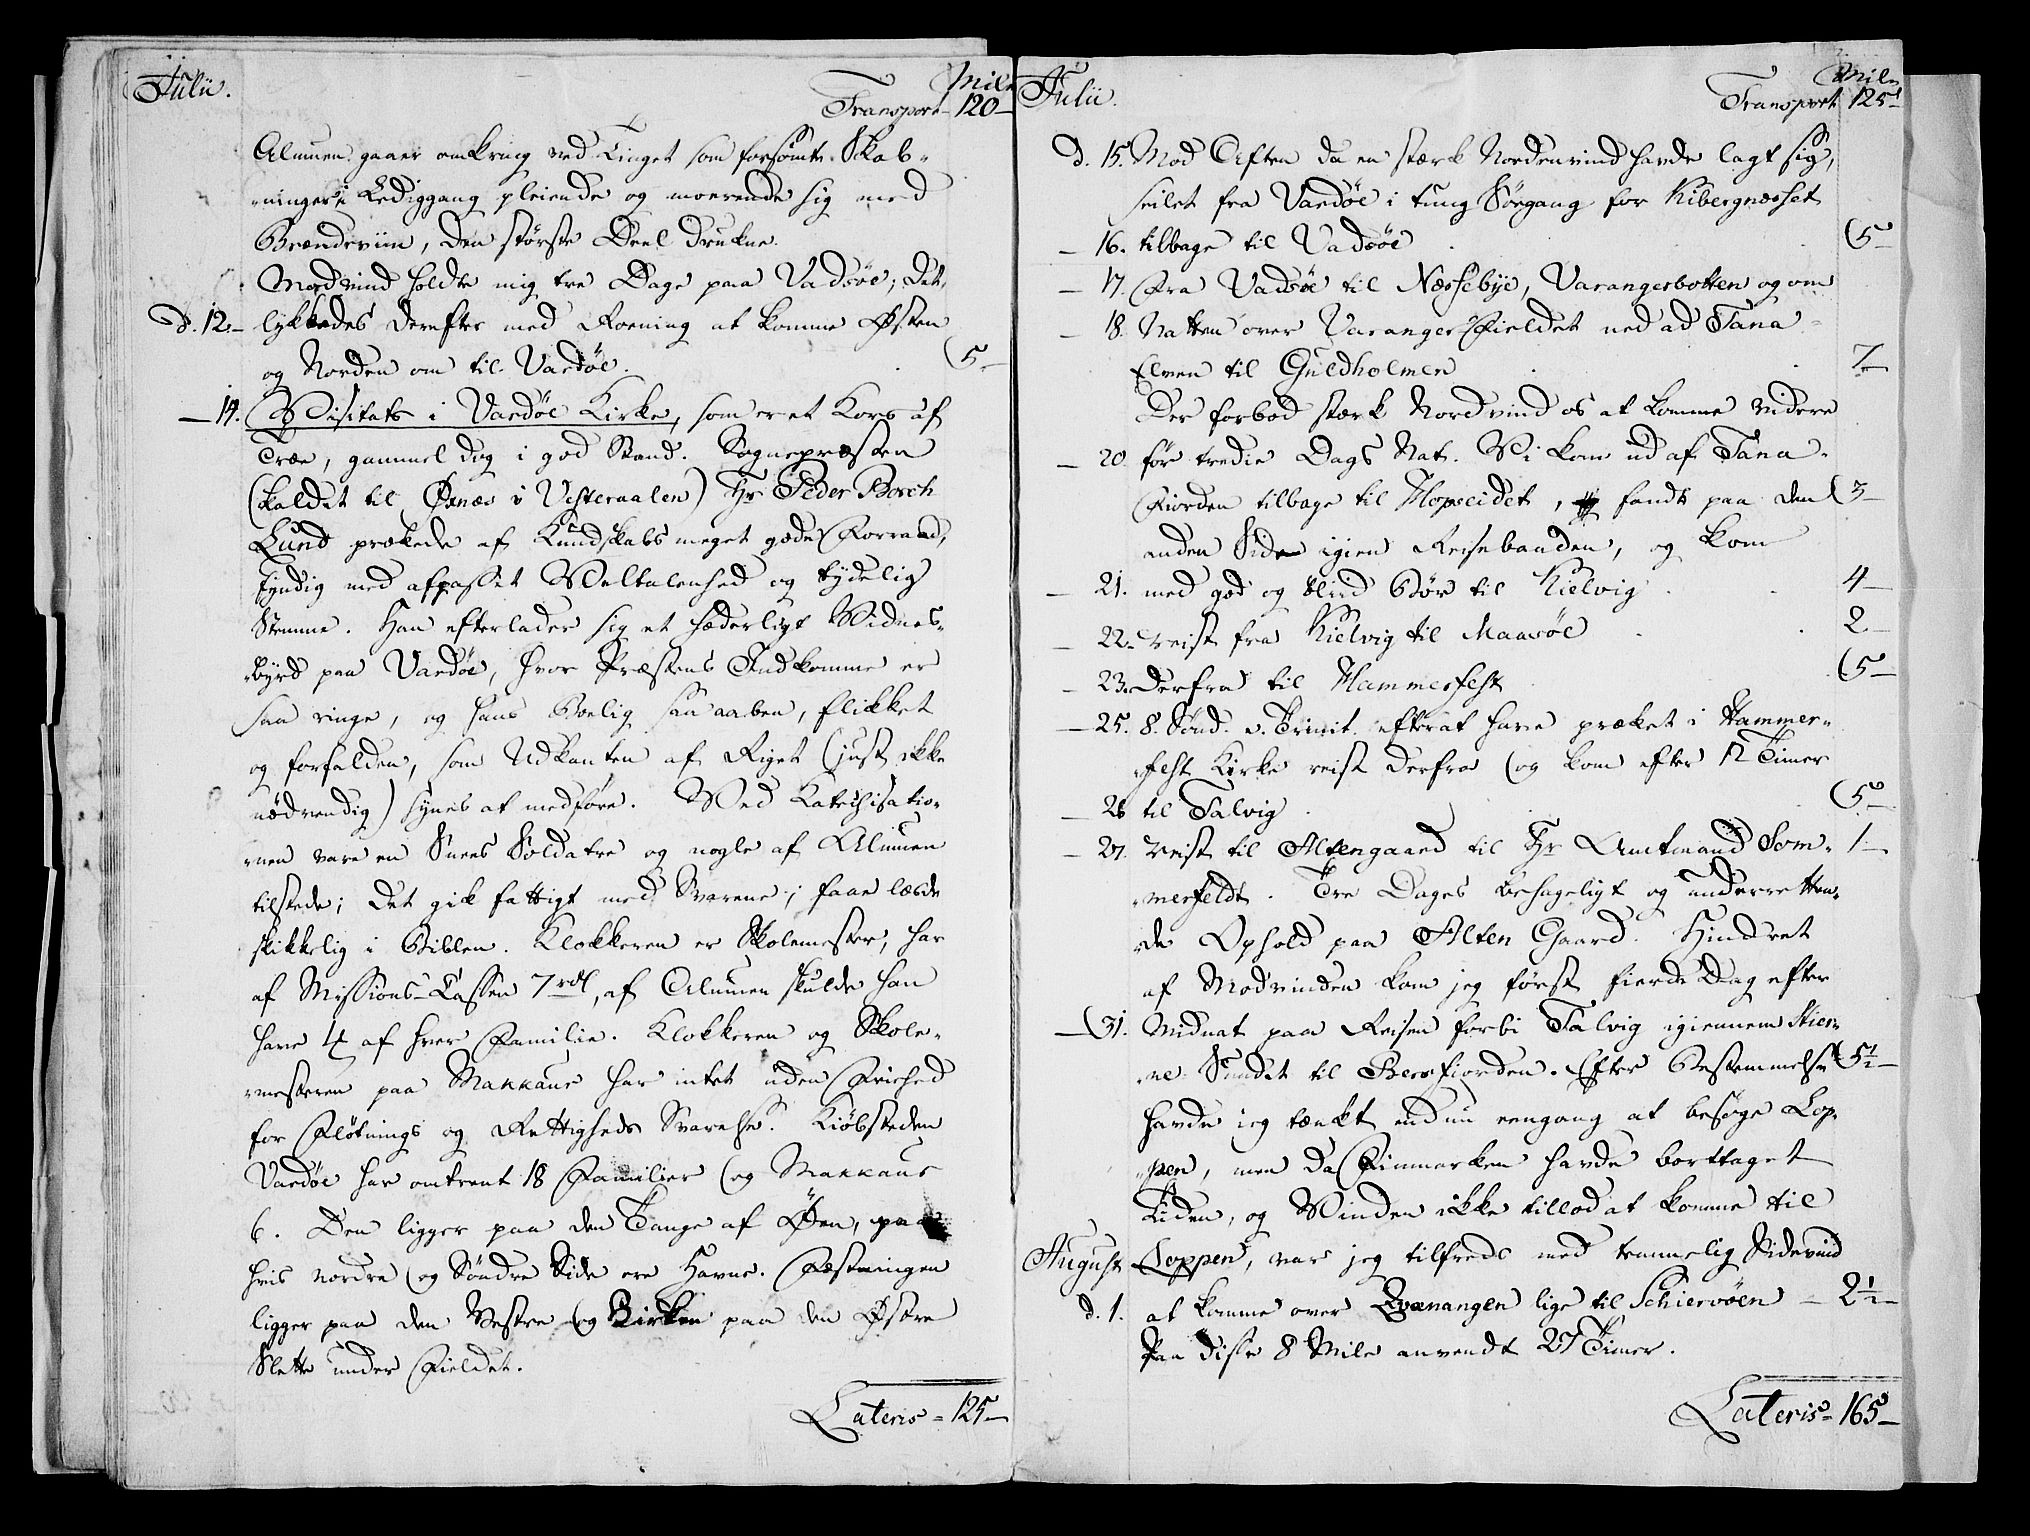 Julii.
Mile
Transport 120
Almuen gaaer omkring ved Tinget som forsömte Skab-
ninger i Lediggang pleiende og moerende sig med
Brændeviin, den störste Deel drukne.
Modvind holdte mig tre Dage paa Vadsöe; Det
d. 12. lykkedes derefter med Roening at komme Östen
og Norden om til Vardöe. 5
— 14. Visitats i Vardöe Kirke, som er et Kors af
Træe, gammel dog i god Stand. Sognepræsten
(kaldet til Öxnæs i Vesteraalen) Hr Peder Borch
Lund prækede af Kundskabs meget gode Forraad,
fyndig med afpasset Veltalenhed og tydelig
Stemme. Han efterlader sig et hæderligt Vidnes-
byrd paa Vardöe, hvor Præstens Indkomme er
saa ringe, og hans Boelig saa aaben, flikket
og forfalden, som Udkanten af Riget (just ikke
nödvendig) synes at medföre. Ved Katechisatio-
nen vare en Snees Soldatre og nogle af Almuen
tilstede; Det gik fattigt med Svarene; faae læste
skikkelig i Biblen. Klokkeren er Skolemester, har
af Missions-Cassen 7 rdl, af Almuen skulde han
have af hver Familie. Klokkeren og Skole-
mesteren paa Makkaur har intet uden Frihed
for Flötnings og Rettigheds Svarelse. Kiöbsteden
Vardöe har omtrent 18 Familier og Makkaur
6. Den ligger paa den Tange af Öen, paa
hvis nordre og Söndre Side ere Havne. Fæstningen
ligger paa den Vestre og Kirken paa den Östre
Slette under Fieldet.
Lateris = 125
Julii.
Mile
Transport 125
d. 15. Mod Aften da en stærk Nordenvind havde lagt sig,
seilet fra Vardöe i tung Söegang for Kibergnæsset
— 16. tilbage til Vadsöe 5
— 17. Fra Vadsöe til Næssebye, Varangerbotten og om
— 18. Natten over Varanger Fieldet ned ad Tana
Elven til Guldholmen 7
Der forbød stærk Nordvind os at komme videre
— 20. för tredie Dags Nat. Vi kom ud af Tana-
Fiorden tilbage til Hopseidet, fandt paa den 3
anden Side igien Reisebaaden, og kom
— 21. med god og blid Bör til Kielvig 4
— 22. reist fra Kielvig til Maasöe 2
— 23. derfra til Hammerfest 5
— 25. 8. Sönd. e. Trinit. efterat have præket i Hammer-
fest Kirke reist derfra og kom efter 12 Timer
— 26 til Talvig 5
— 27. reist til Altengaard til Hr Amtmand Som- 1
merfeldt. Tre Dages behageligt og underretten-
de Ophold paa Alten Gaard. Hindret
af Modvinden kom jeg först fierde Dag efter
— 31. Midnat paa Reisen forbi Talvig igiennem Stier-
ne Sundet til Bersfiorden. Efter Bestemmelse 5½
havde jeg tænkt endnu eengang at besöge Lop-
pen, men da Finmarken havde borttaget
Tiden, og Vinden ikke tillod at komme til
August Loppen, var jeg tilfreds med temmelig Sidevind
d. 1. at komme over Qvænangen lige til Schiervöen — 2½
Paa disse 8 Mile anvendt 27 Timer.
Lateris = 165